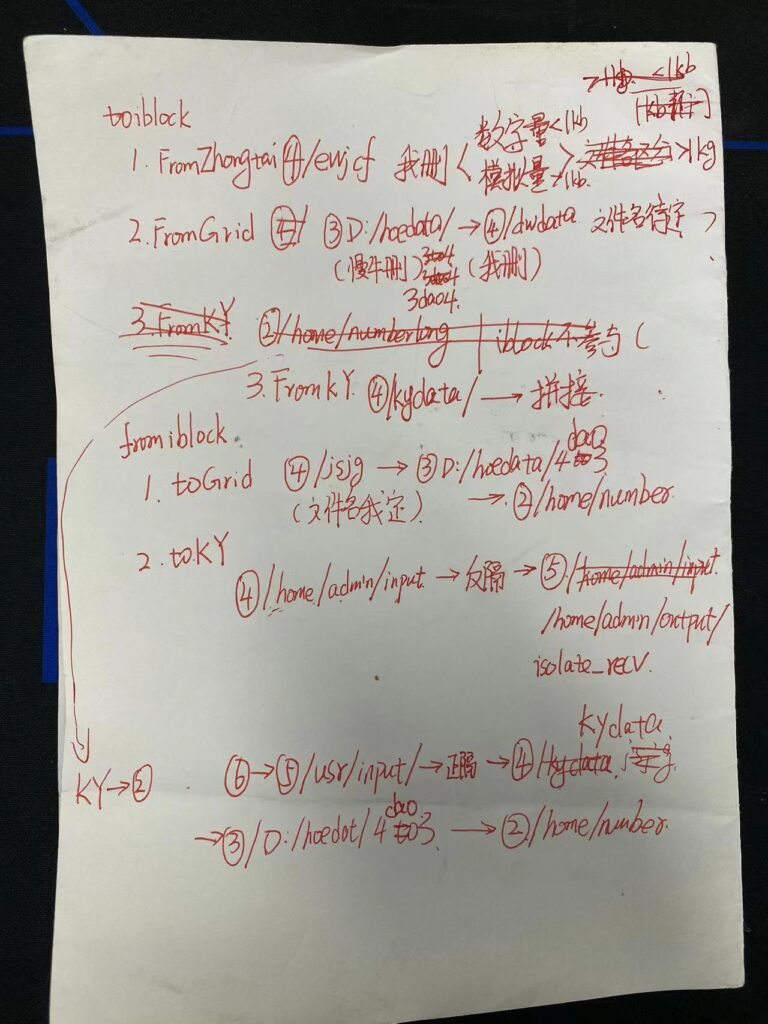 toiblock
数字量<1kb
1. FromZhongtai ④/ewjcf 我删 < 模拟量>1kb. > >1kg
2. FromGrid ④/ ③ D:/hoedata/ → ④/dwdata 文件名待定
(慢牛删) 3to4 (我删)
3dao4
3dao4.
3. FromKY. ②/home/numberlong | iblock不参与 (
3. FromKY. ④/kydata/ → 拼接.
fromiblock
1. toGrid ④/jsjg → ③ D:/hoedata/4dao3
(文件名我定) → ②/home/number.
2. toKY
④/home/admin/input → 反隔 → ⑤/home/admin/input.
/home/admin/output/
isolate_recv.
kydata
KY→② ⑥→⑤/usr/input/→正隔 → ④/kydata.
→③/D:/hoedat/4dao3 → ②/home/number.